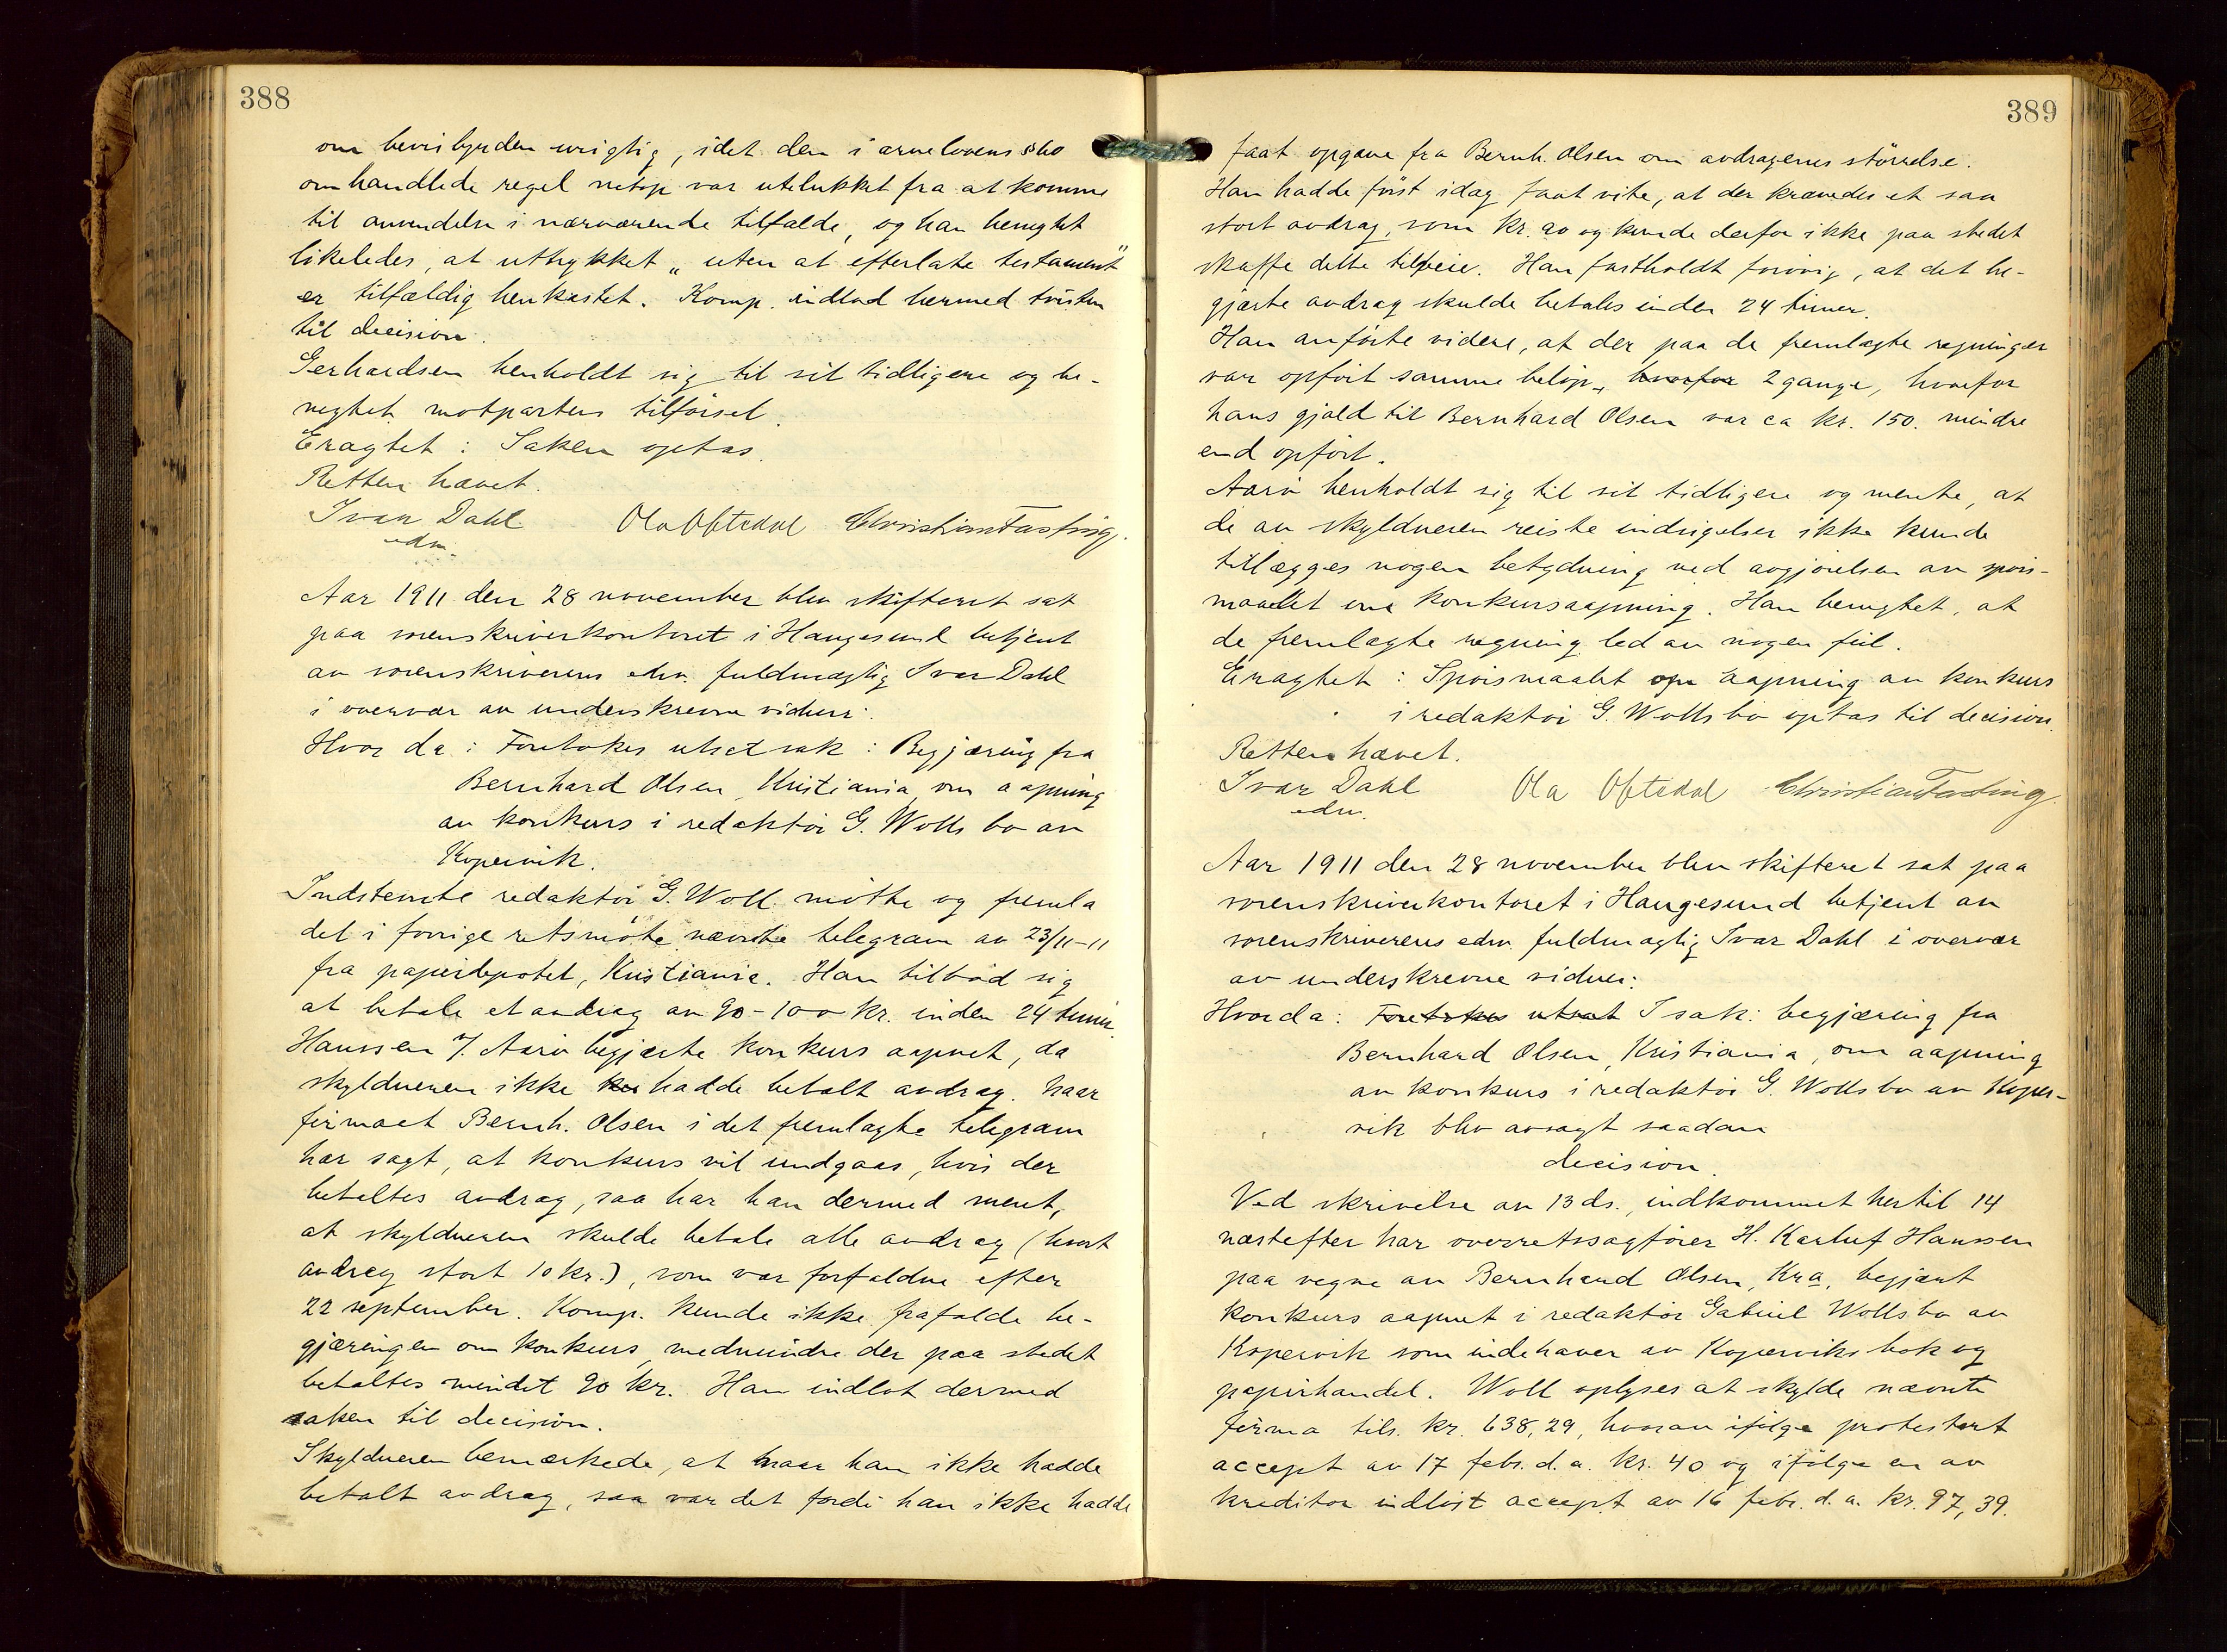 388
om bevisbyrden urigtig, idet den i arvelovens § 60
omhandlede regel netop var utelukket fra at komme
til anvendelse i nærværende tilfælde, og han benegtet
likeledes, at uttrykket „uten at efterlate testament"
er tilfældig henkastet. Komp. indlod hermed tvisten
til decision.
Gerhardsen henholdt sig til sit tidligere og be-
negtet motpartens tilförsel.
Eragtet: Saken optas.
Retten hævet.
Ivar Dahl Ola Oftedal Christian Fasting.
edv.
Aar 1911 den 28 november blev skifteret sat
paa sorenskriverkontoret i Haugesund betjent
av sorenskriverens edv. fuldmægtig Ivar Dahl
i overvær av underskrevne vidner:
Hvor da: Foretokes utsat sak: Begjæring fra
Bernhard Olsen, Kristiania, om aapning
av konkurs i redaktör G. Wolls bo av
Kopervik.
Indstevnte redaktör G. Woll mötte og fremla
det i forrige retsmöte nævnte telegram av 23/11-11
fra papirdepotet, Kristiania. Han tilböd sig
at betale et avdrag av 90-100 kr. inden 24 timer.
Hanssen v/ Aarö begjærte konkurs aapnet, da
skyldneren ikke hadde betalt avdrag. Naar
firmaet Bernh. Olsen i det fremlagte telegram
har sagt, at konkurs vil undgaaes, hvis der
betaltes avdrag, saa har han dermed ment,
at skyldneren skulde betale alle avdrag (hvert
avdrag stort 10 kr.), som var forfaldne efter
22 september. Komp. kunde ikke frafalde be-
gjæringen om konkurs, medmindre der paa stedet
betaltes mindst 90 kr. Han indlot dermed
saken til decision.
Skyldneren bemerkede, at naar han ikke hadde
betalt avdrag, saa var det fordi han ikke hadde
389
faat opgave fra Bernh. Olsen om avdragenes störrelse.
Han hadde först idag faat vite, at der krævedes et saa
stort avdrag, som kr. 90 og kunde derfor ikke paa stedet
skaffe dette tilveie. Han fastholdt forövrig, at det be-
gjærte avdrag skulde betales inden 24 timer.
Han anförte videre, at der paa de fremlagte regninger
var opfört samme belöp, hvorfor 2 gange, hvorfor
hans gjæld til Bernhard Olsen var ca kr. 150. mindre
end opfört.
Aarö henholdt sig til sit tidligere og mente, at
de av skyldneren reiste indsigelser ikke kunde
tillægges nogen betydning ved avgjörelsen av spörs-
maalet om konkursaapning. Han benegtet, at
de fremlagte regning led av nogen feil.
Eragtet: Spörsmaalet om aapning av konkurs
i redaktör G. Wolls bo optas til decision.
Retten hævet.
Ivar Dahl Ola Oftedal Christian Fasting.
edv.
Aar 1911 den 28 november blev skifteret sat paa
sorenskriverkontoret i Haugesund betjent av
sorenskriverens edv. fuldmægtig Ivar Dahl i overvær
av underskrevne vidner:
Hvorda: Foretokes utsat I sak: begjæring fra
Bernhard Olsen, Kristiania, om aapning
av konkurs i redaktör G. Wolls bo av Koper-
vik blev avsagt saadan
decision.
Ved skrivelse av 13 ds., indkommet hertil 14
næstefter har overretssagförer H. Karluf Hanssen
paa vegne av Bernhard Olsen, Kra, begjært
konkurs aapnet i redaktör Gabriel Wolls bo av
Kopervik som indehaver av Koperviks bok og
papirhandel. Woll oplyses at skylde nævnte
firma tils. kr. 638,29, hvorav ifölge protestert
accept av 17 febr. d.a. kr. 40 og ifölge en av
kreditor indlöst accept av 16 febr. d.a. kr. 97,39.